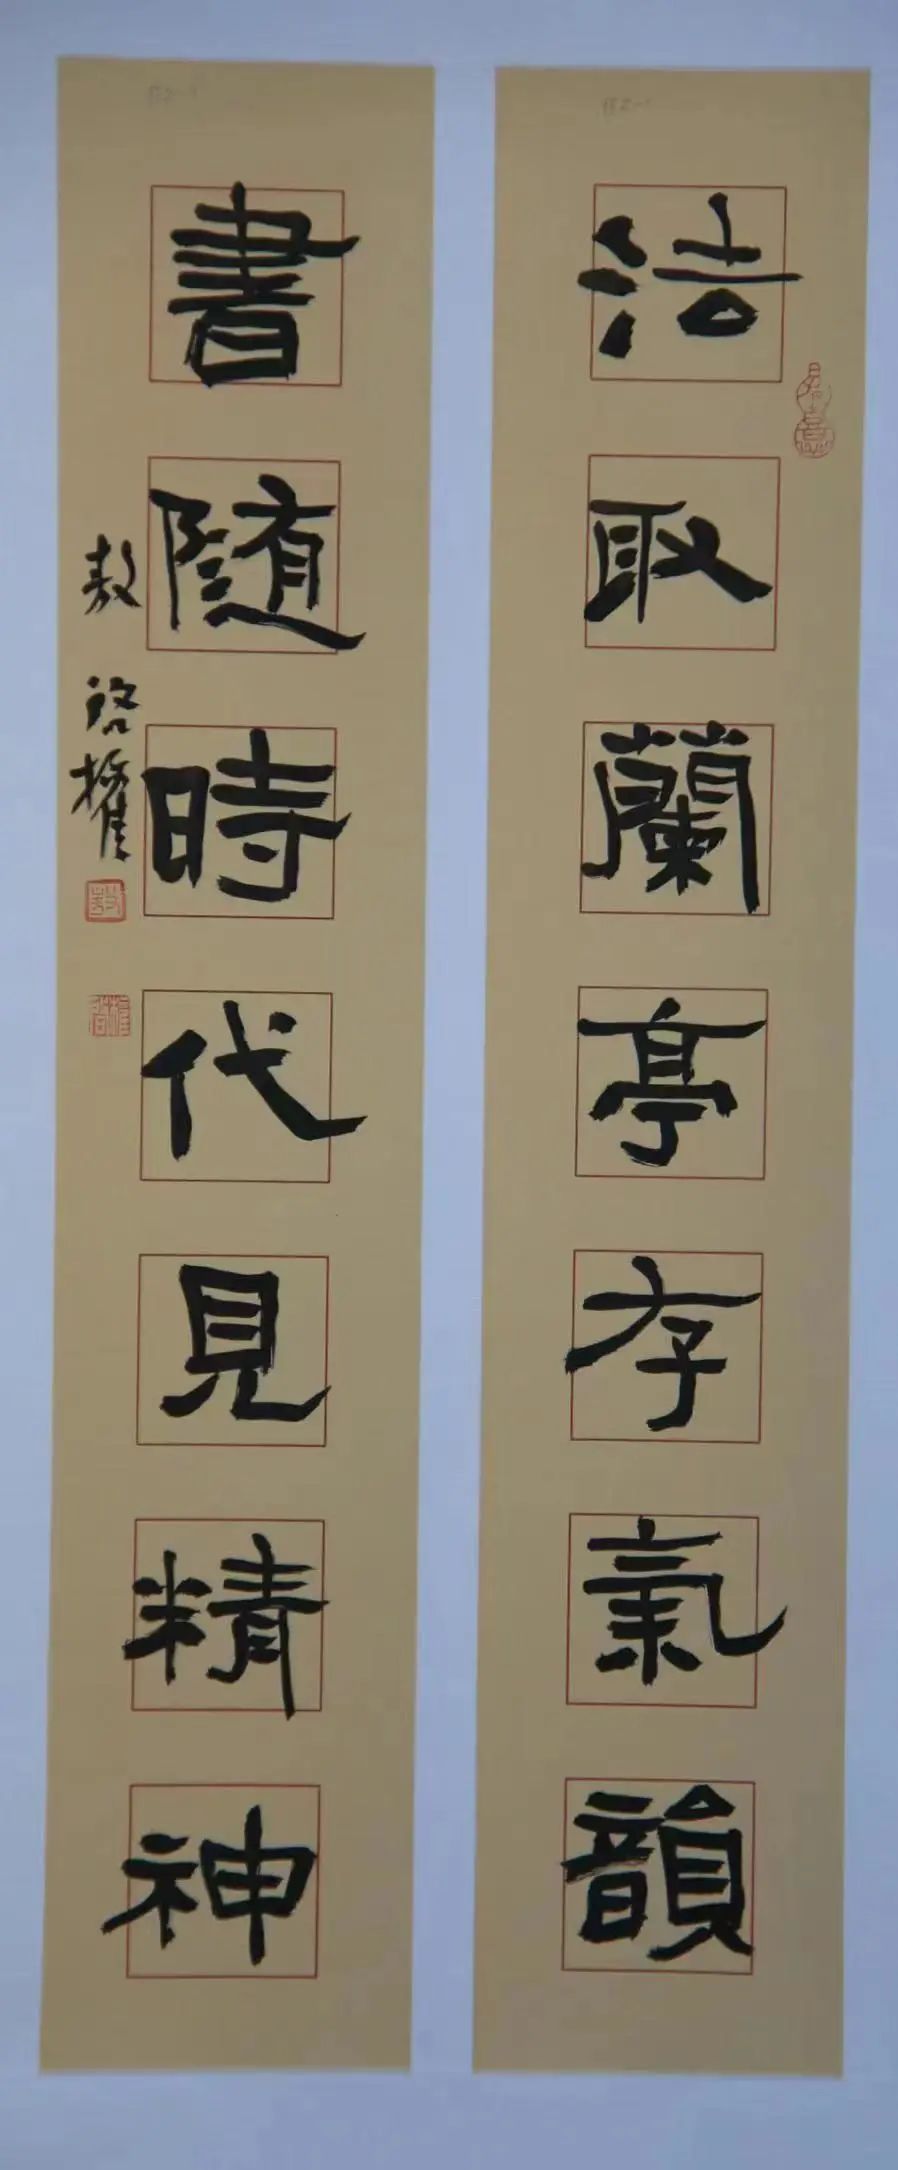 法取蘭亭存氣韻
書隨時代見精神
敖 啓權